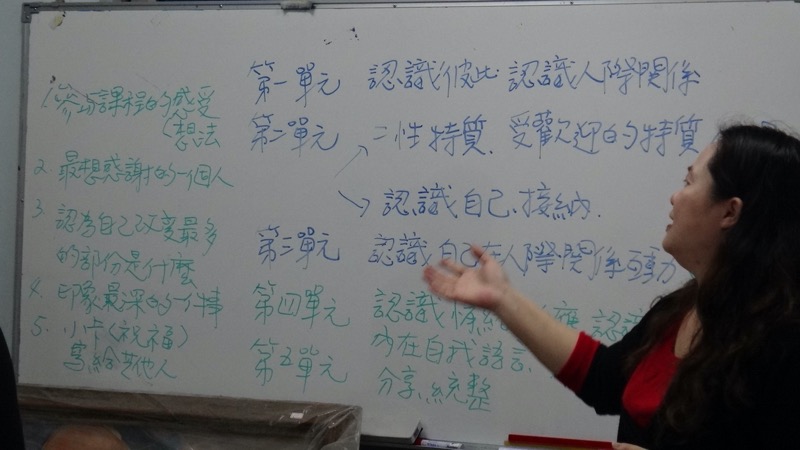 1. 參與課程的感受
想法
2. 最想感謝的一個人
3. 認為自己改變最多
的部份是什麼
4. 印象最深的一個事
5. 小卡(祝福)
寫給其他人
第一單元 認識彼此 認識人際關係
第二單元 二性特質、受歡迎的特質
認識自己、接納
第三單元 認識自己在人際關係互動
第四單元 認識 認
內在自我語言
第五單元 分享、統整